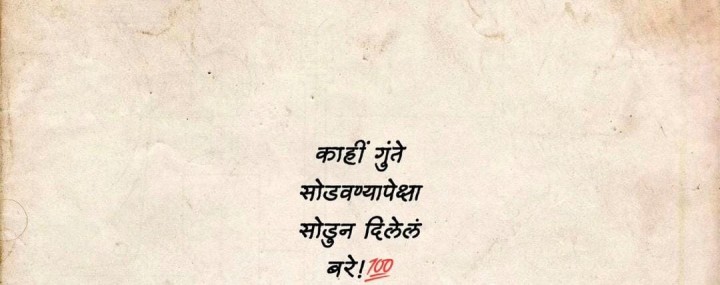 काहीं गुंते
सोडवण्यापेक्षा
सोडुन दिलेलं
बरे!💯